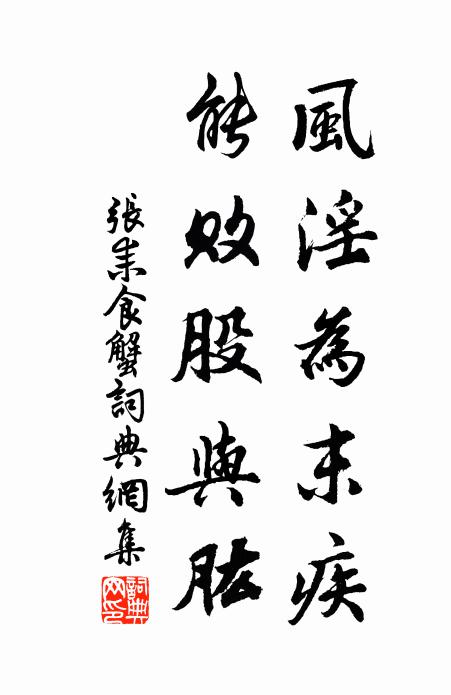 風淫為末疾
能敗股與肱
張耒食蟹詞典網集
詞典網印